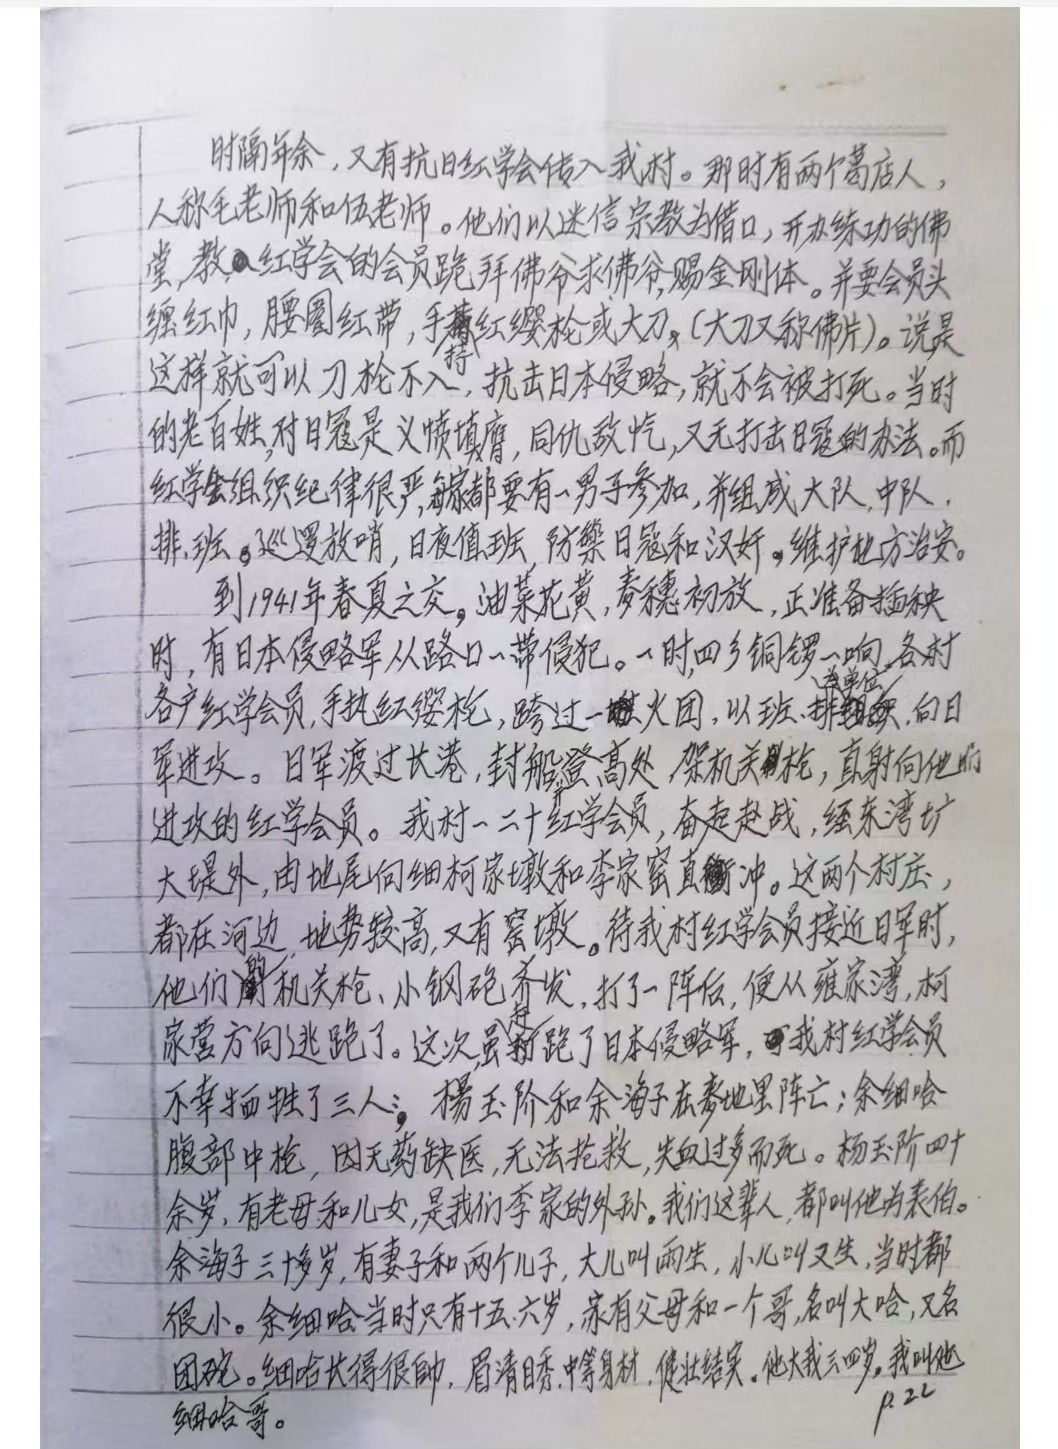 时隔年余，又有抗日红学会传入我村。那时有两个葛店人，
人称毛老师和伍老师。他们以迷信宗教为借口，开办练功的佛
堂，教红学会的会员跪拜佛爷求佛爷，赐金刚体。并要会员头
缠红巾，腰圈红带，手持红缨枪或大刀，（大刀又称佛片）。说是
这样就可以刀枪不入，抗击日本侵略，就不会被打死。当时
的老百姓，对日寇是义愤填膺，同仇敌忾，又无打击日寇的办法。而
红学会组织纪律很严，每家都要有一男子参加，并组成大队、中队、
排、班。巡逻放哨，日夜值班，防禦日寇和汉奸。维护地方治安。
到1941年春夏之交。油菜花黄，麦穗初放，正准备插秧
时，有日本侵略军从路口一带侵犯。一时四乡铜锣一响，各村
各户红学会员，手执红缨枪，跨过一火团，以班、排为单位，向日
军进攻。日军渡过长港，封船登高处，架机关枪，直射向他们
进攻的红学会员。我村一二十红学会员，奋起赴战，经东湾圹
大堤外，由地尾向细柯家墩和李家窑直冲。这两个村庄，
都在河边，地势较高，又有窑墩。待我村红学会员接近日军时，
他们机关枪、小钢砲齐发，打了一阵后，便从雍家湾，柯
家营方向逃跑了。这次虽赶跑了日本侵略军，我村红学会员
不幸牺牲了三人；杨玉阶和余海子在麦地里阵亡；余细哈
腹部中枪，因无药缺医，无法抢救，失血过多而死。杨玉阶四十
余岁，有老母和儿女，是我们李家的外孙。我们这辈人，都叫他为表伯。
余海子三十多岁，有妻子和两个儿子，大儿叫雨生，小儿叫又生，当时都
很小。余细哈当时只有十五、六岁，家有父母和一个哥，名叫大哈，又名
团砣。细哈长得很帅，眉清目秀，中等身材，健壮结实。他大我三四岁。我叫他
细哈哥。
P.22